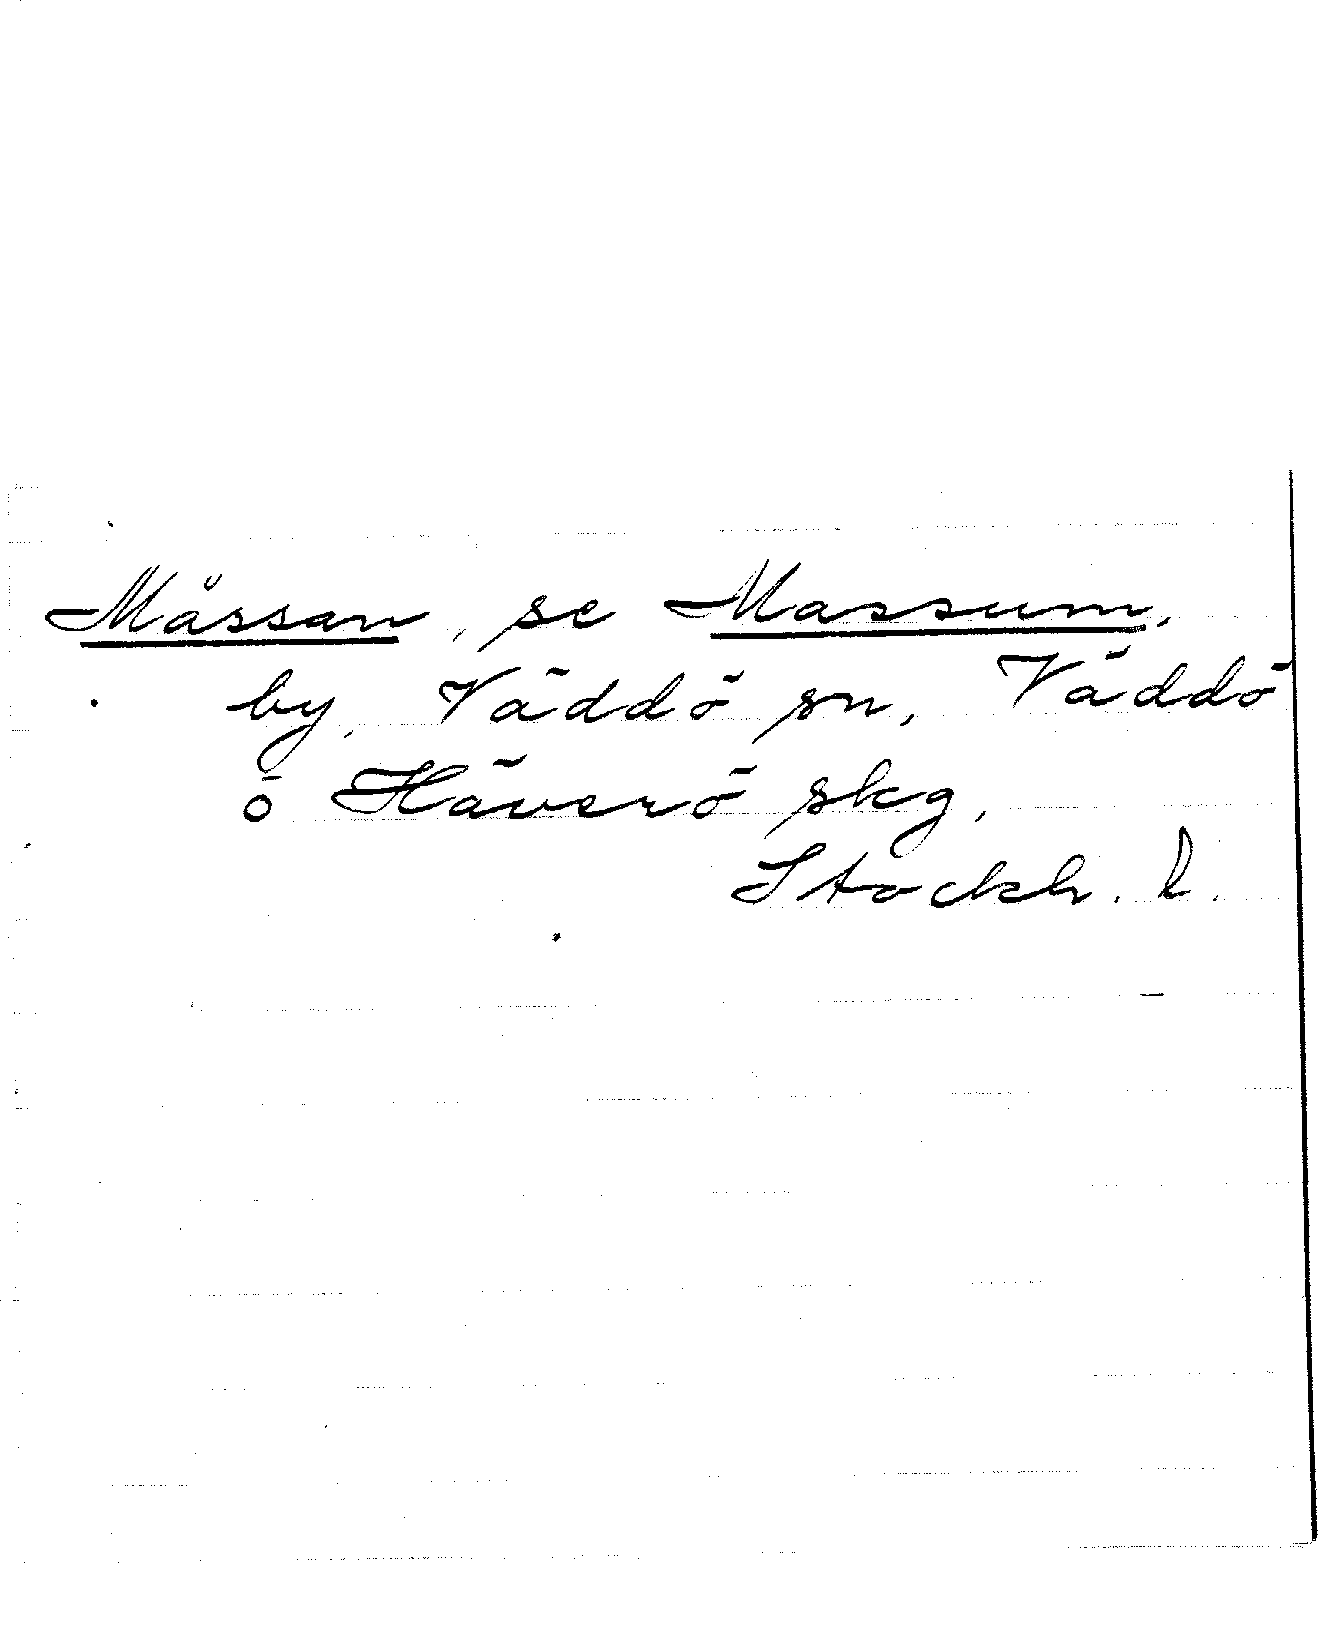 Måssan, se Massum,
by, Väddö sn, Väddö
o Häverö skg,
Stockh. l.